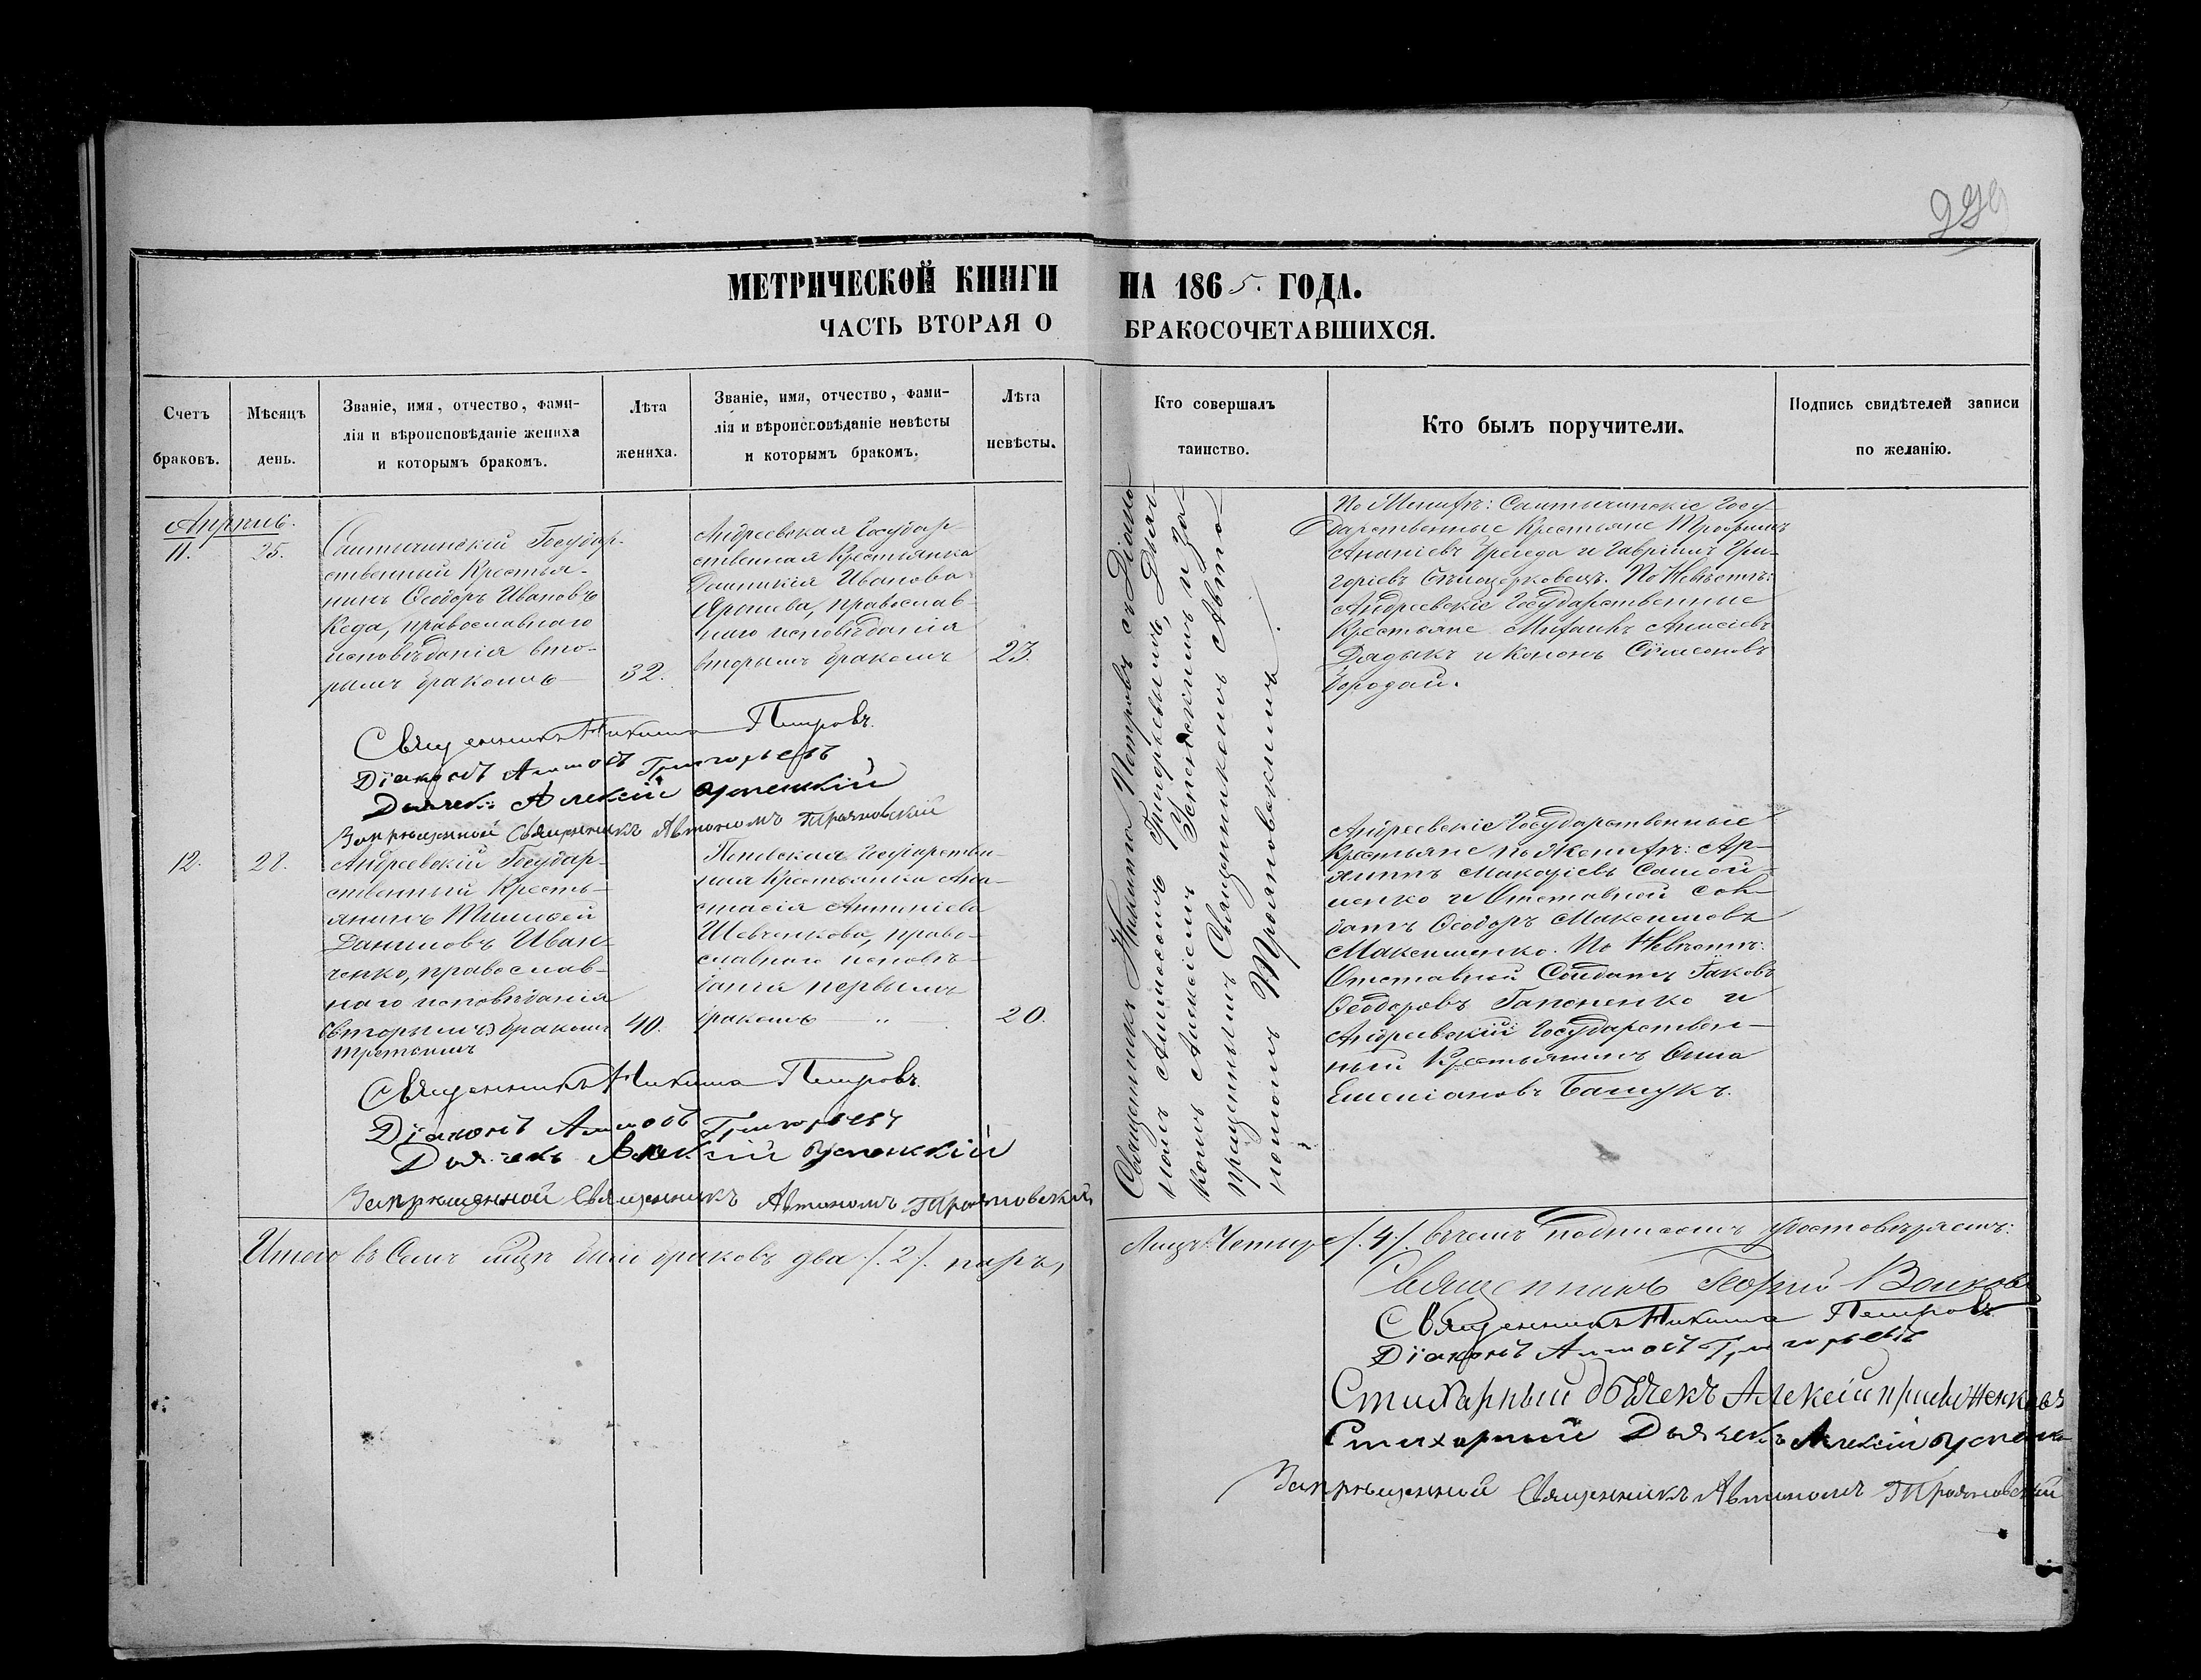 299
МЕТРИЧЕСКОЙ КНИГИ НА 1865. ГОДА.
ЧАСТЬ ВТОРАЯ О БРАКОСОЧЕТАВШИХСЯ.
Счетъ
браковъ.
Мѣсяцъ
день.
Званіе, имя, отчество, фами-
лія и вѣроисповѣданіе жениха
и которымъ бракомъ.
Лѣта
жениха.
Званіе, имя, отчество, фами-
лія и вѣроисповѣданіе невѣсты
и которымъ бракомъ.
Лѣта
невѣсты.
Кто совершалъ
таинство.
Кто былъ поручители.
Подпись свидѣтелей записи
по желанію.
11.
25.
Салтычинскій Государ-
ственный Крестья-
нинъ Ѳеодоръ Ивановъ
Кеда, православнаго
исповѣданія вто-
рымъ бракомъ
32.
Андреевская Государ-
ственная Крестьянка
Домникія Иванова
православ-
наго исповѣданія
вторымъ бракомъ
23.
Священникъ Никита Петровъ съ Діако-
номъ Григорьевымъ, Дьяч-
комъ Алексіемъ Успенскимъ и За-
прещеннымъ Священникомъ Авто-
номомъ Трояновскимъ.
По Женихѣ: Салтычинскіе Госу-
дарственные Крестьяне Трофимъ
Ананіевъ и Гавріилъ Гри-
горіевъ Бѣлоцерковецъ. По Невѣстѣ:
Андреевскіе Государственные
Крестьяне Алексіевъ
Дядыкъ и Кононъ Сѵмеоновъ
Бородай.
Священникъ Никита Петровъ.
Діаконъ Григорьевъ
Дьячекъ Алексій Успенскій
Запрещенной Священникъ Автономъ Трояновскій
12.
28.
Андреевскій Государ-
ственный Кресть-
янинъ Тимофей
Даниловъ Иван-
ченко, православ-
наго исповѣданія
(вторымъ) бракомъ
третьимъ
40.
Государствен-
ная Крестьянка Ана-
стасія Антоніева
Шевченкова, право-
славнаго исповѣ-
данія первымъ
бракомъ
20.
Андреевскіе Государственные
Крестьяне по Женихѣ:
Макаріевъ Самой-
ленко и Отставной сол-
датъ Ѳеодоръ Максимовъ
Максименко. По Невѣстѣ:
Отставной Солдатъ Іаковъ
Ѳеодоровъ Гапоненко и
Андреевскій Государствен-
ный Крестьянинъ Ѳома
Емеліановъ Башукъ.
Священникъ Никита Петровъ.
Діаконъ Григорьевъ
Дьячекъ Алексій Успенскій
Запрещенной Священникъ Автономъ Трояновскій
Итого въ Семъ браковъ два /.2/. паръ,
Лицъ: Четыре /.4/. въ чемъ подписомъ удостовѣряемъ:
Священникъ Георгій Волковъ
Священникъ Никита Петровъ
Діаконъ Григорьевъ
Стихарный Дьячекъ Алексій
Стихарный Дьячекъ Алексій
Запрещенной Священникъ Автономъ Трояновскій